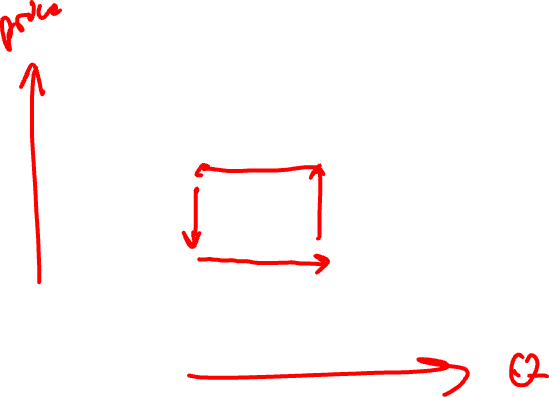 price
Q